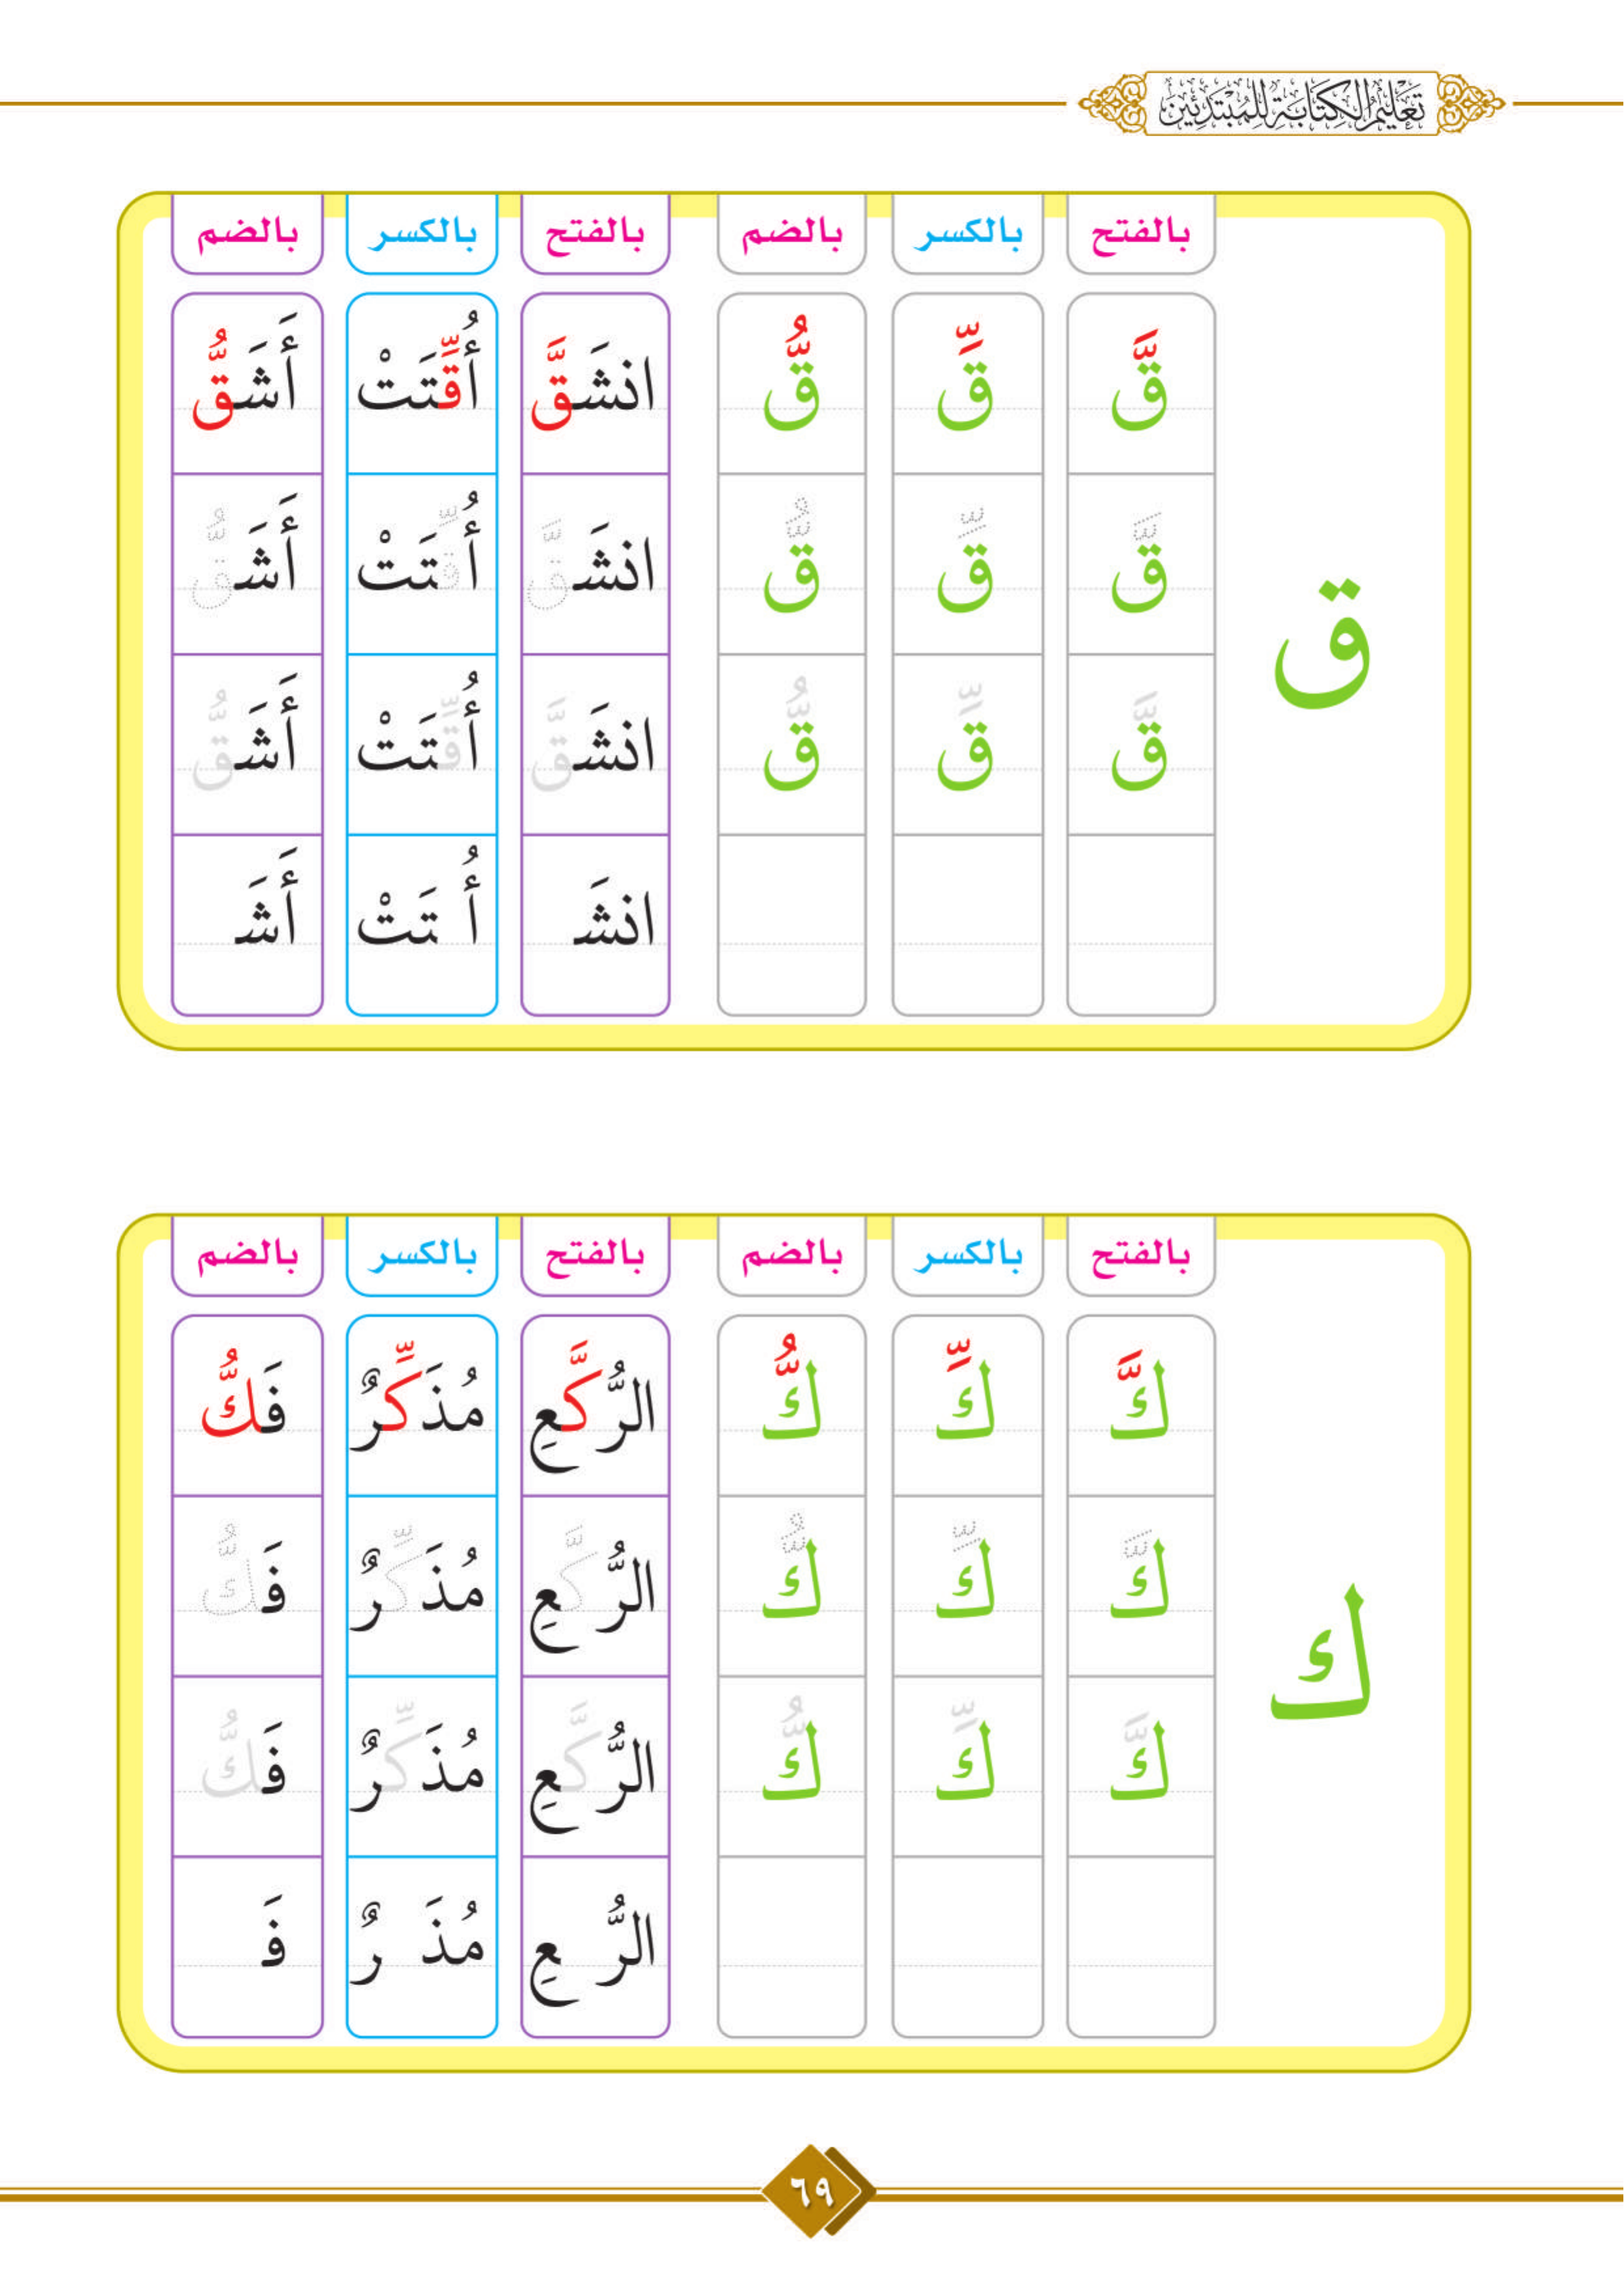 تَعْلِيمُ الْكِتَابَةِ لِلْمُبْتَدِئِينَ
بالفتح بالكسر بالضم بالفتح بالكسر بالضم
قَّ قِّ قُّ انشَقَّ أُقِّتَتْ أَشَقُّ
ق
قَّ قِّ قُّ انشَقَّ أُقِّتَتْ أَشَقُّ
قَّ قِّ قُّ انشَقَّ أُقِّتَتْ أَشَقُّ
انشَـ أُ تَتْ أَشَـ
بالفتح بالكسر بالضم بالفتح بالكسر بالضم
كَّ كِّ كُّ الرُّكَّعِ مُذَكِّرٌ فَكُّ
كَّ كِّ كُّ الرُّكَّعِ مُذَكِّرٌ فَكُّ
ك
كَّ كِّ كُّ الرُّكَّعِ مُذَكِّرٌ فَكُّ
الرُّ عِ مُذَ رٌ فَـ
٦٩